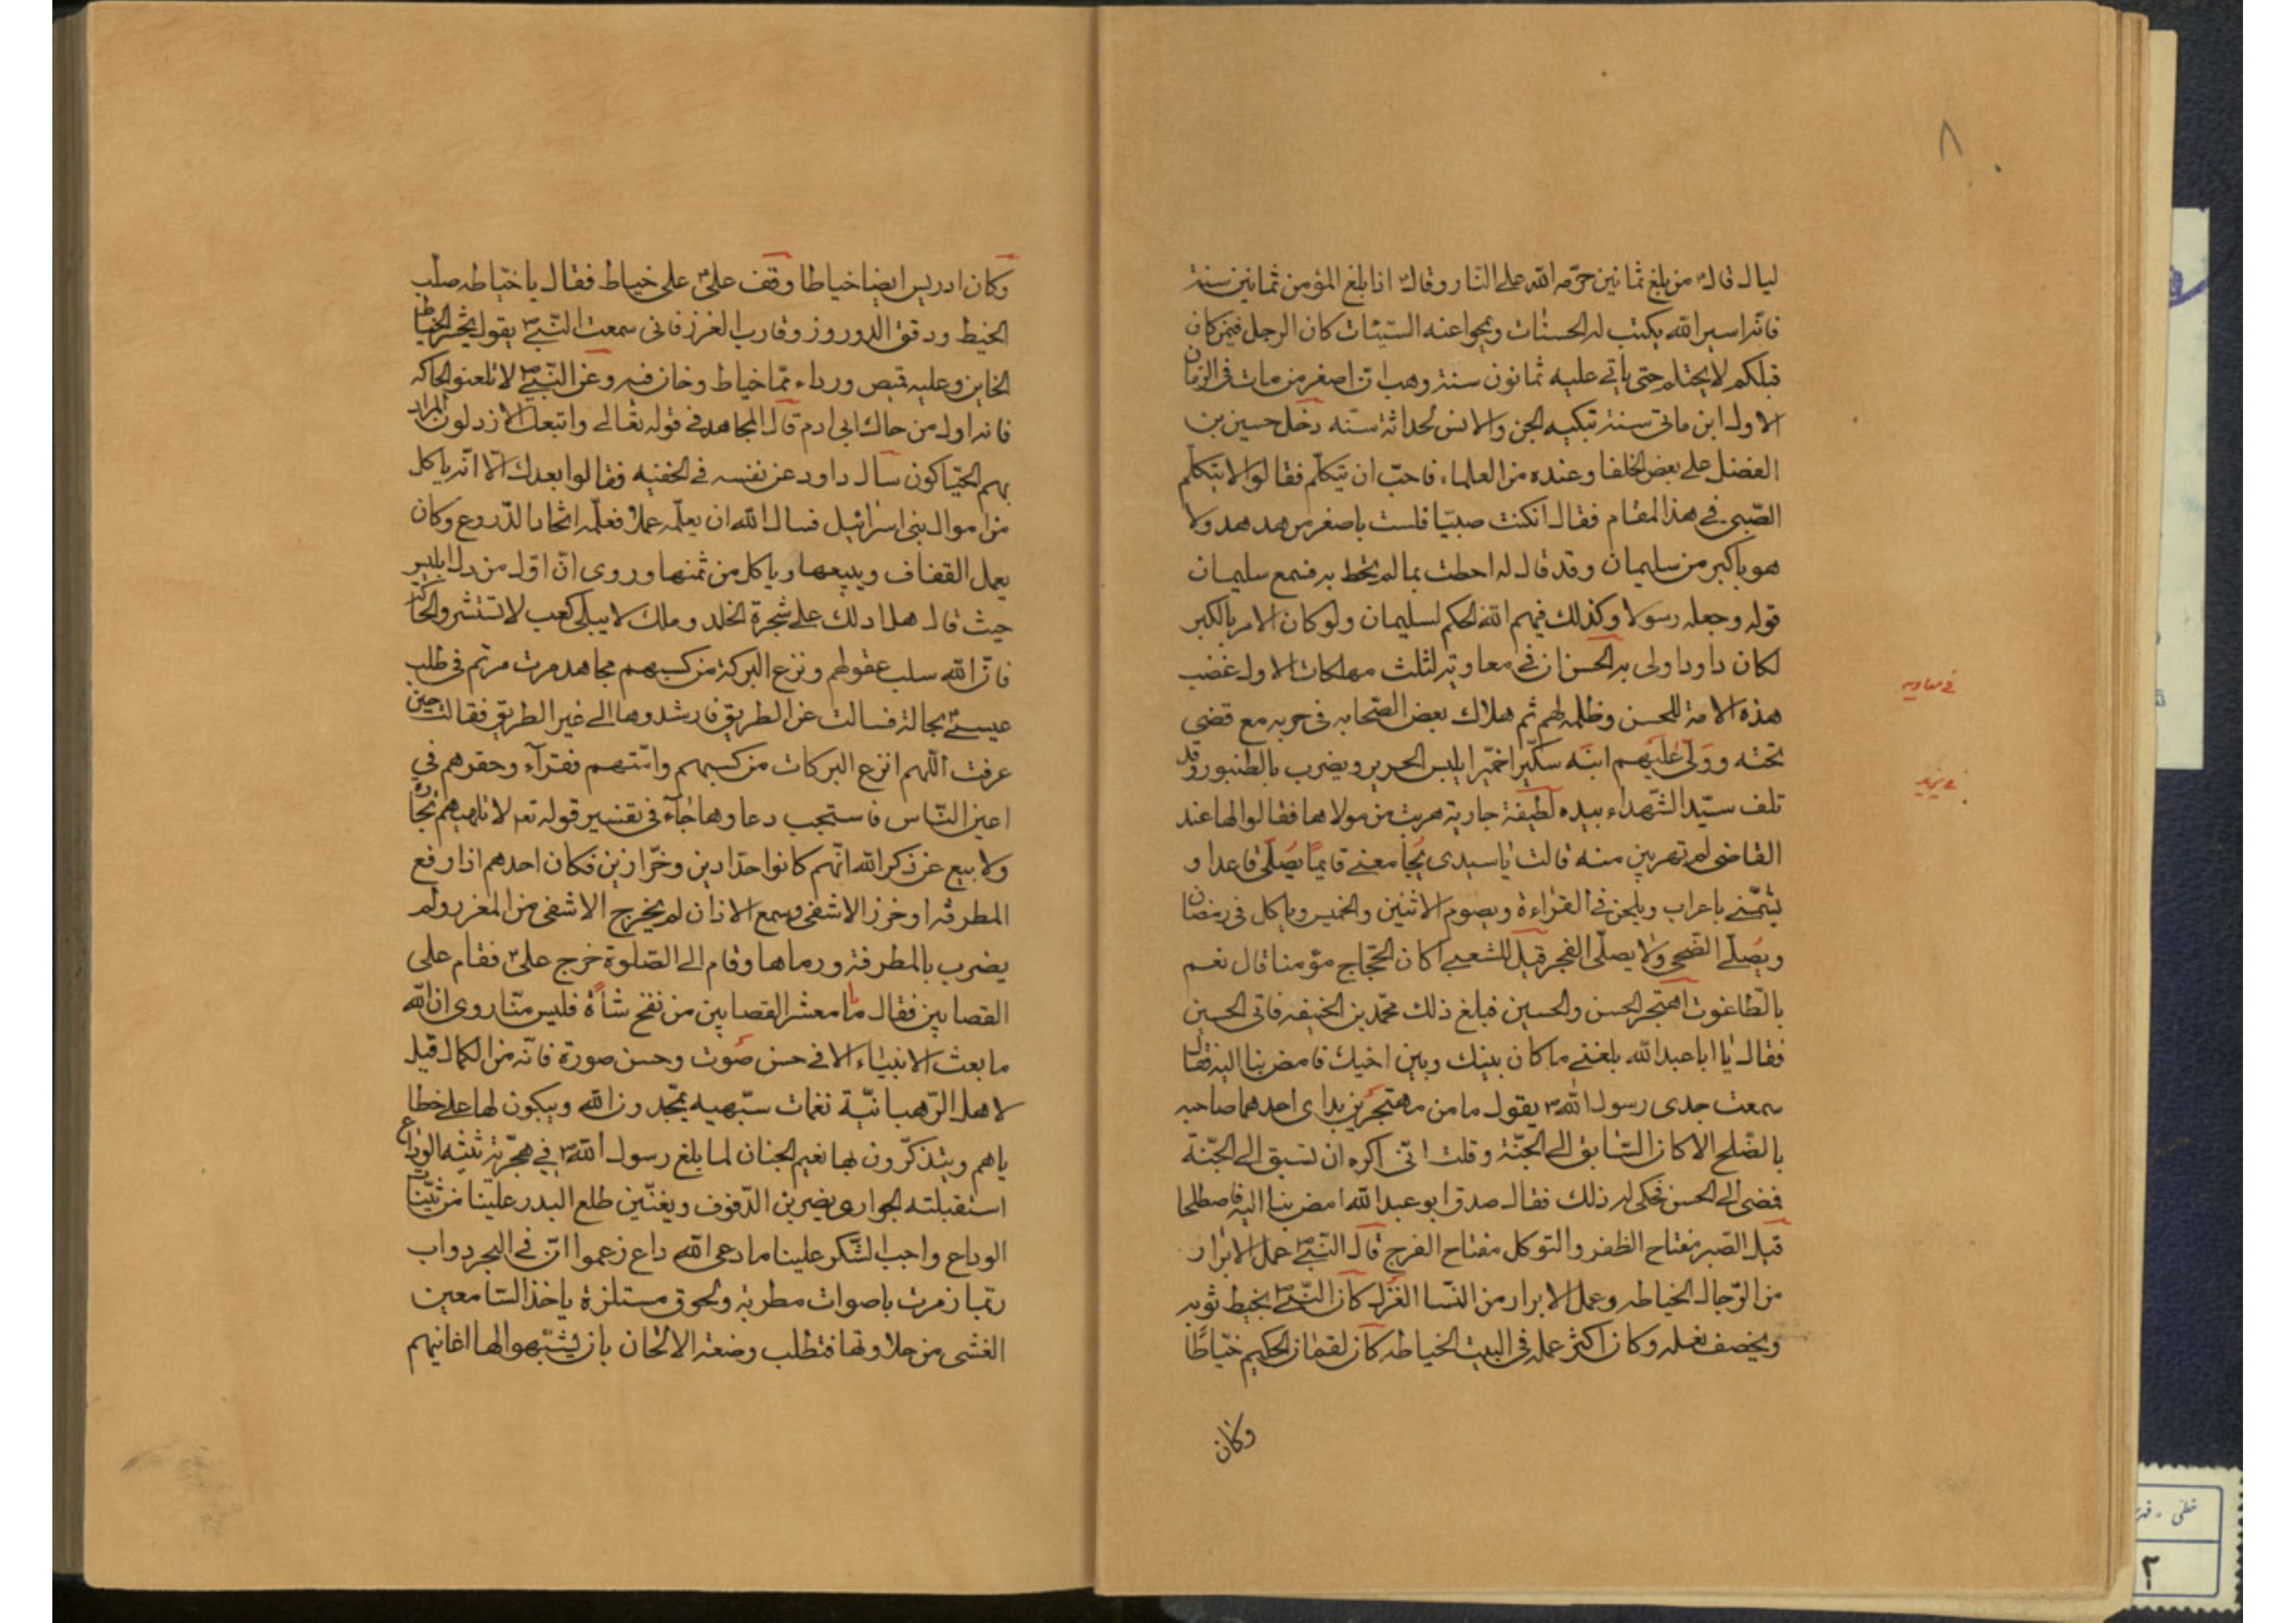 ٨
ليال قال من بلغ ثمانين حرّمه الله على النار وقال اذا بلغ المؤمن ثمانين سنة
فانه اسير الله يكتب له الحسنات ويمحوا عنه السيئات كان الرجل فيمن كان
قبلكم لا يحتلم حتى ياتي عليه ثمانون سنة وهب ان اصغر من مات في الزمان
الاول ابن مأتى سنة تبكيه الجن والانس لحداثة سنه دخل حسين بن
الفضل على بعض الخلفا وعنده من العلماء فاحبّ ان يتكلّم فقالوا لا يتكلّم
الصّبي في هذا المقام فقال ان كنت صبيّا فلست باصغر من هدهد ولا
هو باكبر من سليمان وقد قال له احطت بما لم تحط به فسمع سليمان
قوله وجعله رسولا وكذلك فهم الله الحكم لسليمان ولو كان الامر بالكبر
لكان داود اولى به الحسن ان في معاوية لثلث مهلكات الاول غضب
في معاويه
هذه الامة للحسن وظلمه لهم ثم هلاك بعض الصّحابه في حربه مع قضى
تحته وولّى عليهم ابنه سكّيرا خمّيرا يلبس الحرير ويضرب بالطنبور وقد
في يزيد
تلف سيّد الشّهداء بيده لطيفة جارية هربت من مولاها فقالوا لها عند
القاضي لم تهربين منه قالت يا سيدى يجامعني قايمًا يصلّى قاعدا و
يشتمني باعراب ويلحن في القراءة ويصوم الاثنين والخميس وياكل في رمضان
ويصلّي الضّحى ولا يصلّي الفجر قيل للشعبي اكان الحجّاج مؤمنا قال نعم
بالطّاغوت اهتجر الحسن والحسين فبلغ ذلك محمّد بن الحنيفه فاتى الحسين
فقال يا ابا عبد الله بلغني ما كان بينك وبين اخيك فامض بنا اليه قال
سمعت جدى رسول الله يقول ما من مهتجرين بداى احدهما صاحبه
بالصّلح الا كان السّابق الى الجنّة وقلت انّى اكره ان تسبق الى الجنّة
فمضى الى الحسن فحكى له ذلك فقال صدق ابو عبد الله امض بنا اليه فاصطلحا
قيل الصّبر مفتاح الظفر والتوكل مفتاح الفرج قال النّبيّ عمل الابرار
من الرّجال الخياطه وعمل الابرار من النسا الغزل كان النّبيّ يخيط ثوبه
ويخصف نعله وكان اكثر عمله في البيت الخياطه كان لقمان الحكيم خيّاطًا
وكان
وكان ادريس ايضا خياطا وقف علىّ على خياط فقال يا خيّاطه صلّب
الخيط ودقق الدروز وقارب الغرز فانى سمعت النّبيّ يقول يحشر الخياط
الخاين وعليه قميص ورداء ممّا خياط وخان فيه وعن النّبيّ لا تلعنوا الحاكه
فانه اول من حاك ابى ادم قال المجاهد في قوله تعالى واتبعك الارذلون المراد
بهم الحيّاكون سال داود عن نفسه في الخفيه فقالوا بعدك الّا انّه ياكل
من اموال بنى اسرائيل فسال الله ان يعلّمه عملا فعلّمه اتخاذ الدّروع وكان
يعمل القفاف ويبيعها وياكل من ثمنها وروى انّ اوّل من دل ابليس
حيث قال هل ادلك على شجرة الخلد وملك لا يبلى كعب لا تستشروا الحاكة
فانّ الله سلب عقولهم ونزع البركة من كسبهم مجاهد مرت مريم في طلب
عيسى بحالة فسالت عن الطريق فارشدوها الى غير الطريق فقالت حين
عرفت اللّهم انزع البركات من كسبهم وامتهم فقرآء وحقرهم في
اعين النّاس فاستجب دعاوها جآء في تفسير قوله تعـ لا تلهيهم تجارة
ولا بيع عن ذكر الله انّهم كانوا حدّادين وخرّازين فكان احدهم اذا رفع
المطرقة او خرز الاشفى وسمع الاذان لم يخرج الاشفى من المغرز ولم
يضرب بالمطرقة ورماها وقام الى الصّلوة خرج علىّ فقام على
القصابين فقال يا معشر القصابين من نفخ شاة فليس منّا روى ان الله
ما بعث الانبياء الا في حسن صوت وحسن صورة فانّه من الكمال قيل
لاهل الرّهبانيّة نغمات شبّهيه يمجّدون الله ويبكون لها على خطا
ياهم ويتذكّرون بها نعيم الجنان لما بلغ رسول الله في هجرته ثنيّة الوداع
استقبلته الجوارى يضربن الدّفوف ويغنّين طلع البدر علينا من ثنيّات
الوداع واجب الشّكر علينا ما دعى الله داع زعموا انّ في البحر دواب
ربّما زمرت باصوات مطربة ولحوق مستلزة ياخذ السّامعين
الغشى من حلاوتها فتطلب وضعة الالحان بان يشبّهوا لها اغانيهم
خطى - فهر
٢